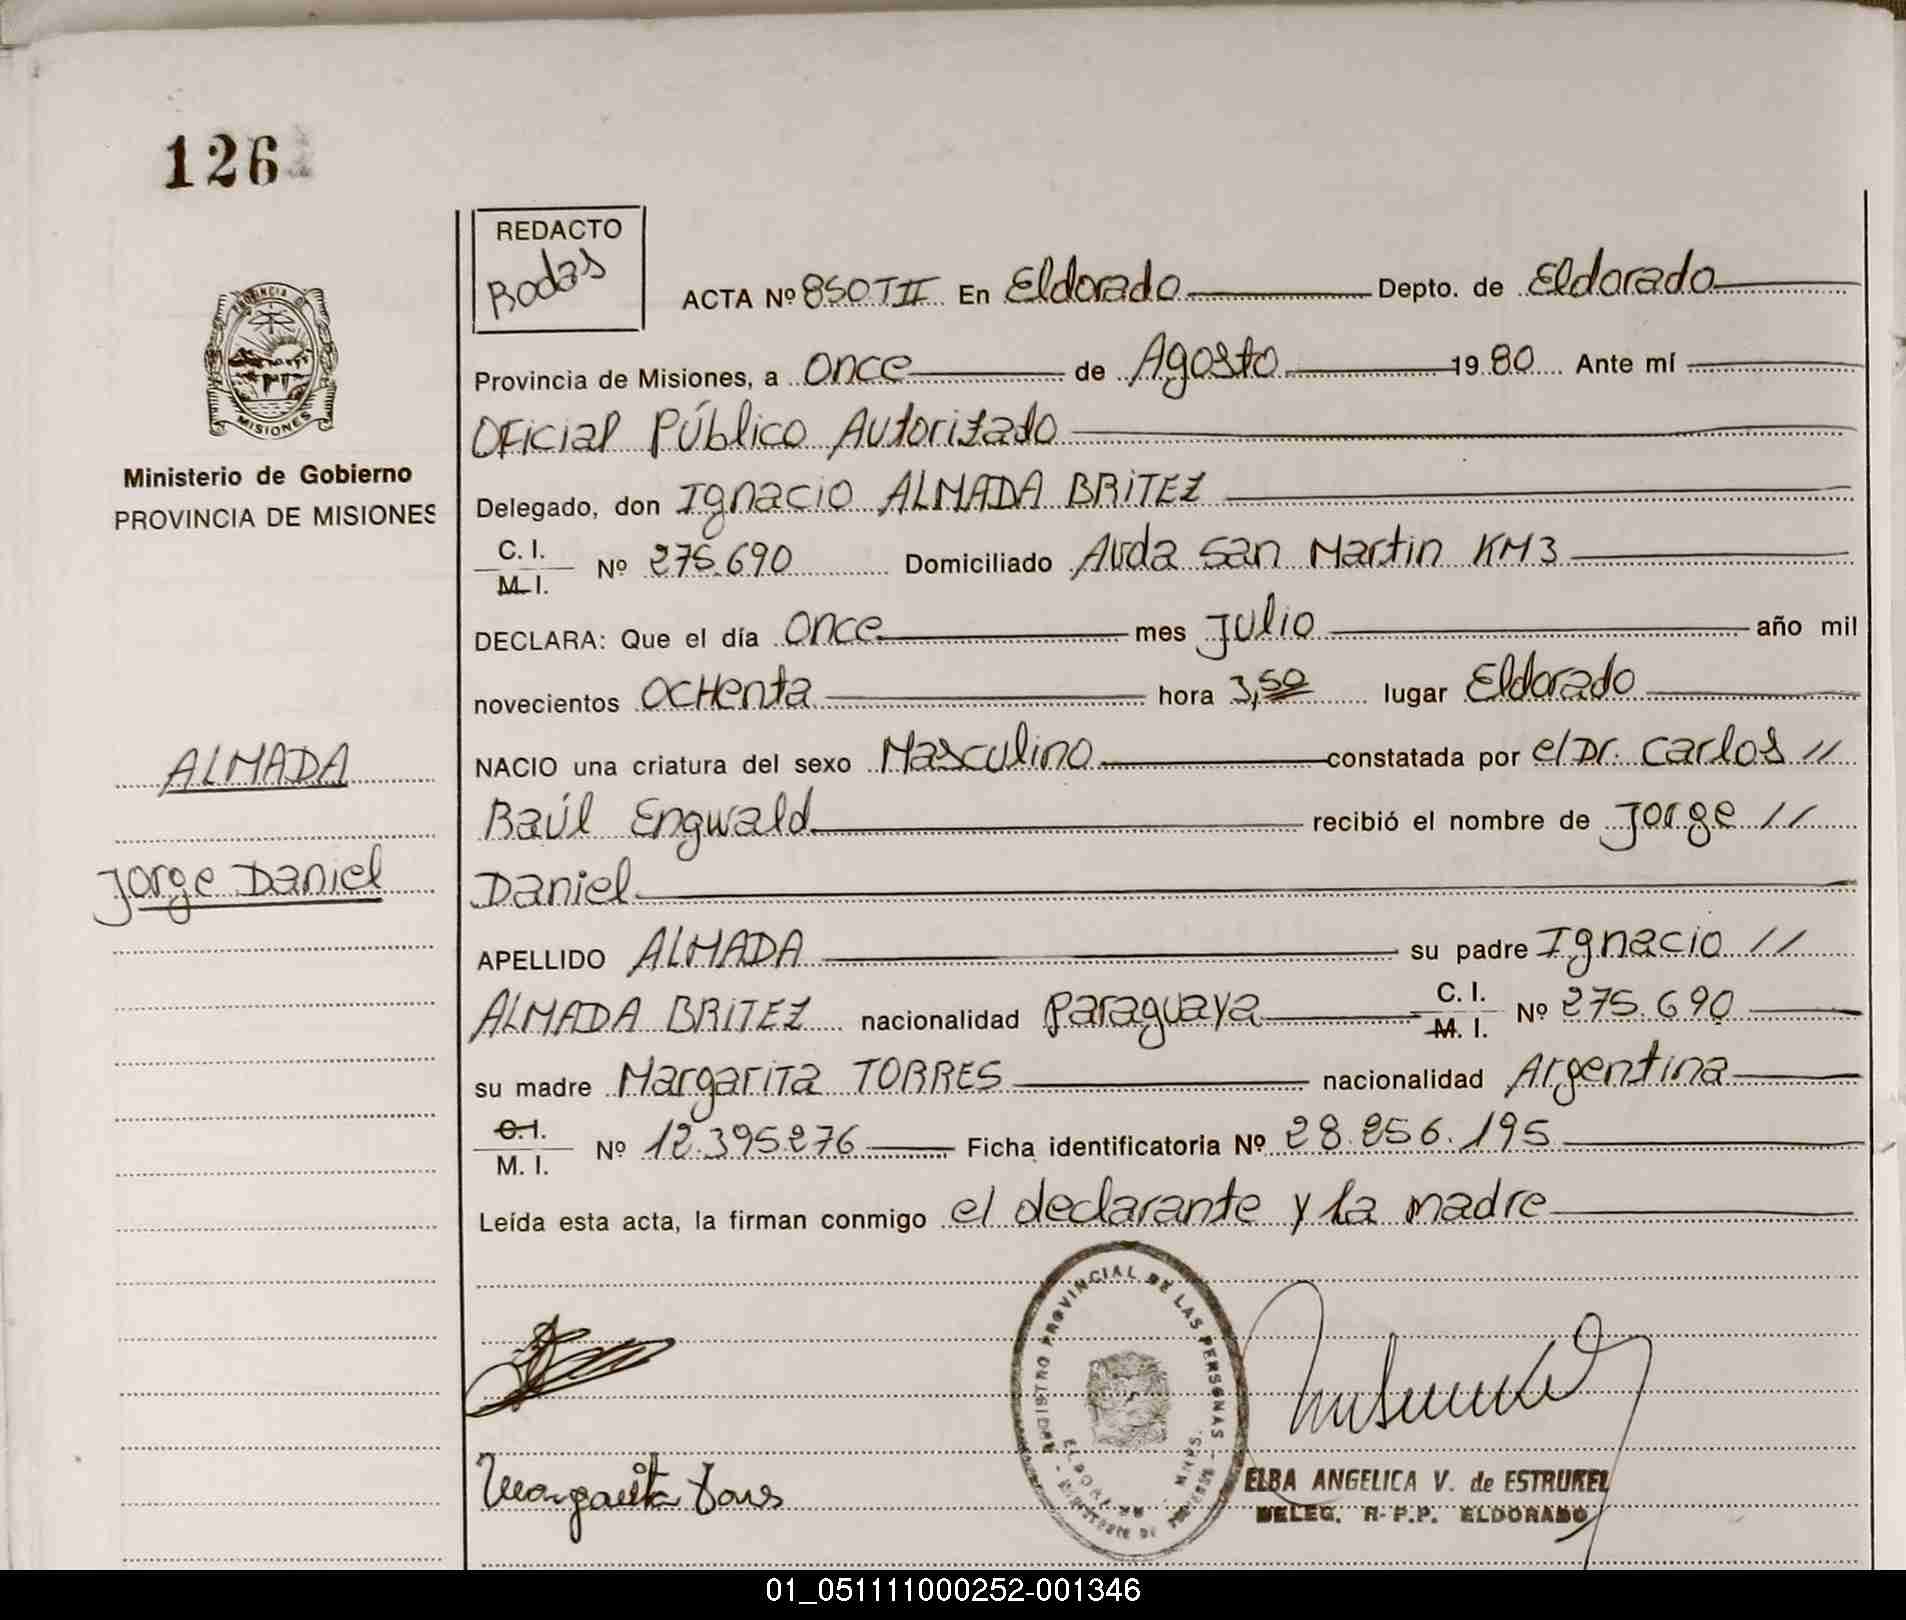 126
REDACTO
Rodas
ACTA Nº 850TII En Eldorado Depto. de Eldorado
Provincia de Misiones, a once de Agosto 1980 Ante mí
Oficial Público Autorizado
PROVINCIA DE
MISIONES
Ministerio de Gobierno
PROVINCIA DE MISIONES
Delegado, don Ignacio ALMADA BRITEZ
C. I.
M. I. Nº 275.690 Domiciliado Avda San Martin KM3
DECLARA: Que el día once mes Julio año mil
novecientos ocHenta hora 3,50 lugar Eldorado
NACIO una criatura del sexo Masculino constatada por el Dr. Carlos //
Raúl Engwald recibió el nombre de Jorge //
Daniel
ALMADA
Jorge Daniel
APELLIDO ALMADA su padre Ignacio //
ALMADA BRITEZ nacionalidad Paraguaya C. I. M. I. Nº 275.690
su madre Margarita TORRES nacionalidad Argentina
C. I.
M. I. Nº 12.395.276 Ficha identificatoria Nº 28.256.195
Leída esta acta, la firman conmigo el declarante y la madre
REGISTRO PROVINCIAL DE LAS PERSONAS
ELDORADO - MNES.
Margarita Torres
ELBA ANGELICA V. de ESTRUKEL
DELEG. R.P.P. ELDORADO
01_051111000252-001346